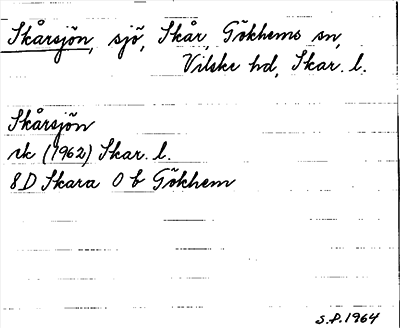 Skårsjön, sjö, Skår, Gökhems sn,
Vilske hd, Skar. l.
Skårsjön
rk (1962) Skar. l.
8D Skara 0 b Gökhem
S.P. 1964